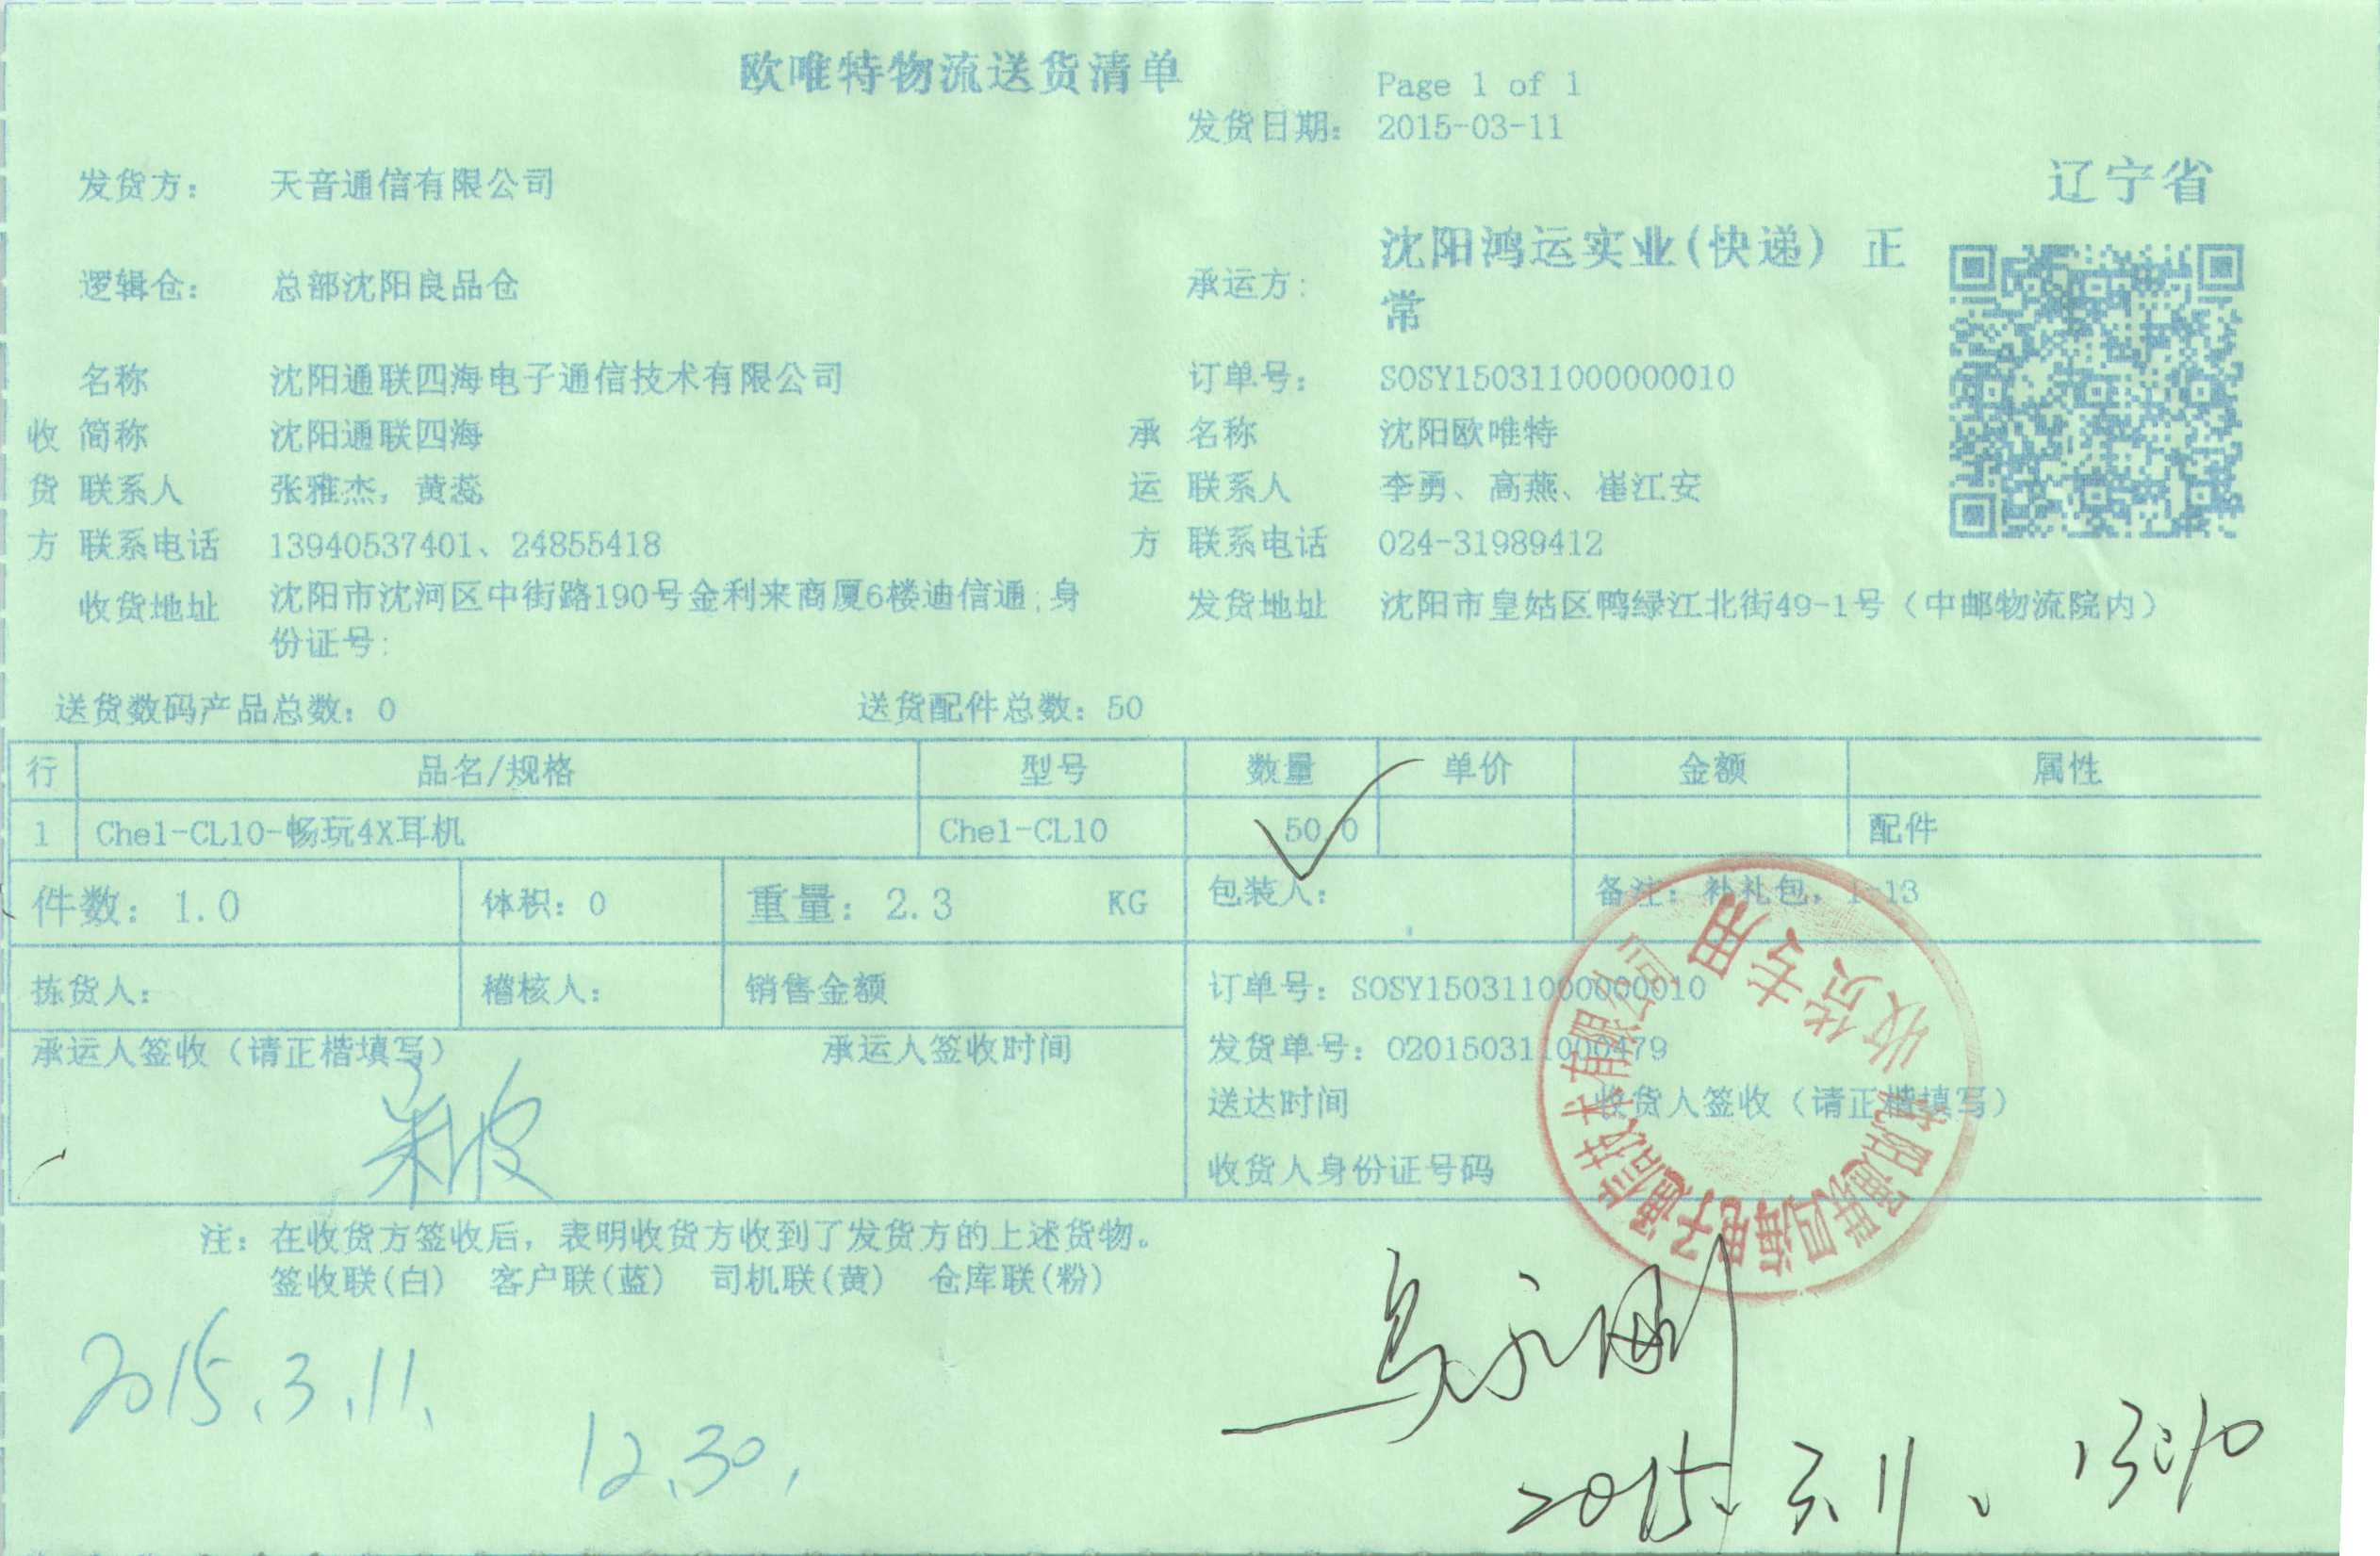 欧唯特物流送货清单
Page 1 of 1
发货日期: 2015-03-11
发货方: 天音通信有限公司
辽宁省
逻辑仓: 总部沈阳良品仓
承运方: 沈阳鸿运实业(快递) 正
常
名称 沈阳通联四海电子通信技术有限公司
订单号: SOSY150311000000010
收 简称 沈阳通联四海
承 名称 沈阳欧唯特
货 联系人 张雅杰, 黄蕊
运 联系人 李勇、高燕、崔江安
方 联系电话 13940537401、24855418
方 联系电话 024-31989412
收货地址 沈阳市沈河区中街路190号金利来商厦6楼迪信通;身
份证号:
发货地址 沈阳市皇姑区鸭绿江北街49-1号（中邮物流院内）
送货数码产品总数: 0 送货配件总数: 50
行 品名/规格 型号 数量 单价 金额 属性
1 Che1-CL10-畅玩4X耳机 Che1-CL10 50.0 配件
件数: 1.0 体积: 0 重量: 2.3 KG 包装人: 备注: 补礼包, 1-13
拣货人: 稽核人: 销售金额
订单号: SOSY150311000000010
承运人签收（请正楷填写） 承运人签收时间
发货单号: 020150311000479
送达时间 收货人签收（请正楷填写）
收货人身份证号码
沈阳通联四海电子通信技术有限公司
收货专用
注: 在收货方签收后, 表明收货方收到了发货方的上述货物。
签收联(白) 客户联(蓝) 司机联(黄) 仓库联(粉)
2015.3.11.
12.30.
2015.3.11. 13:10